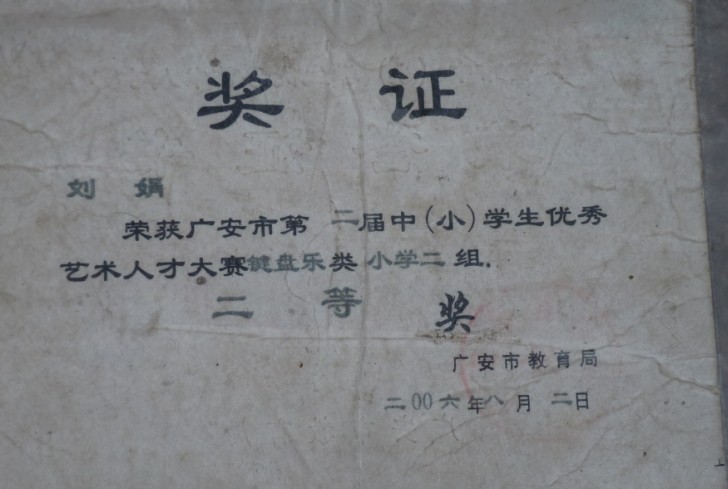 奖 证
刘 娟
荣获广安市第二届中(小)学生优秀
艺术人才大赛键盘乐类小学二组.
二 等 奖
广安市教育局
二00六年八月二日